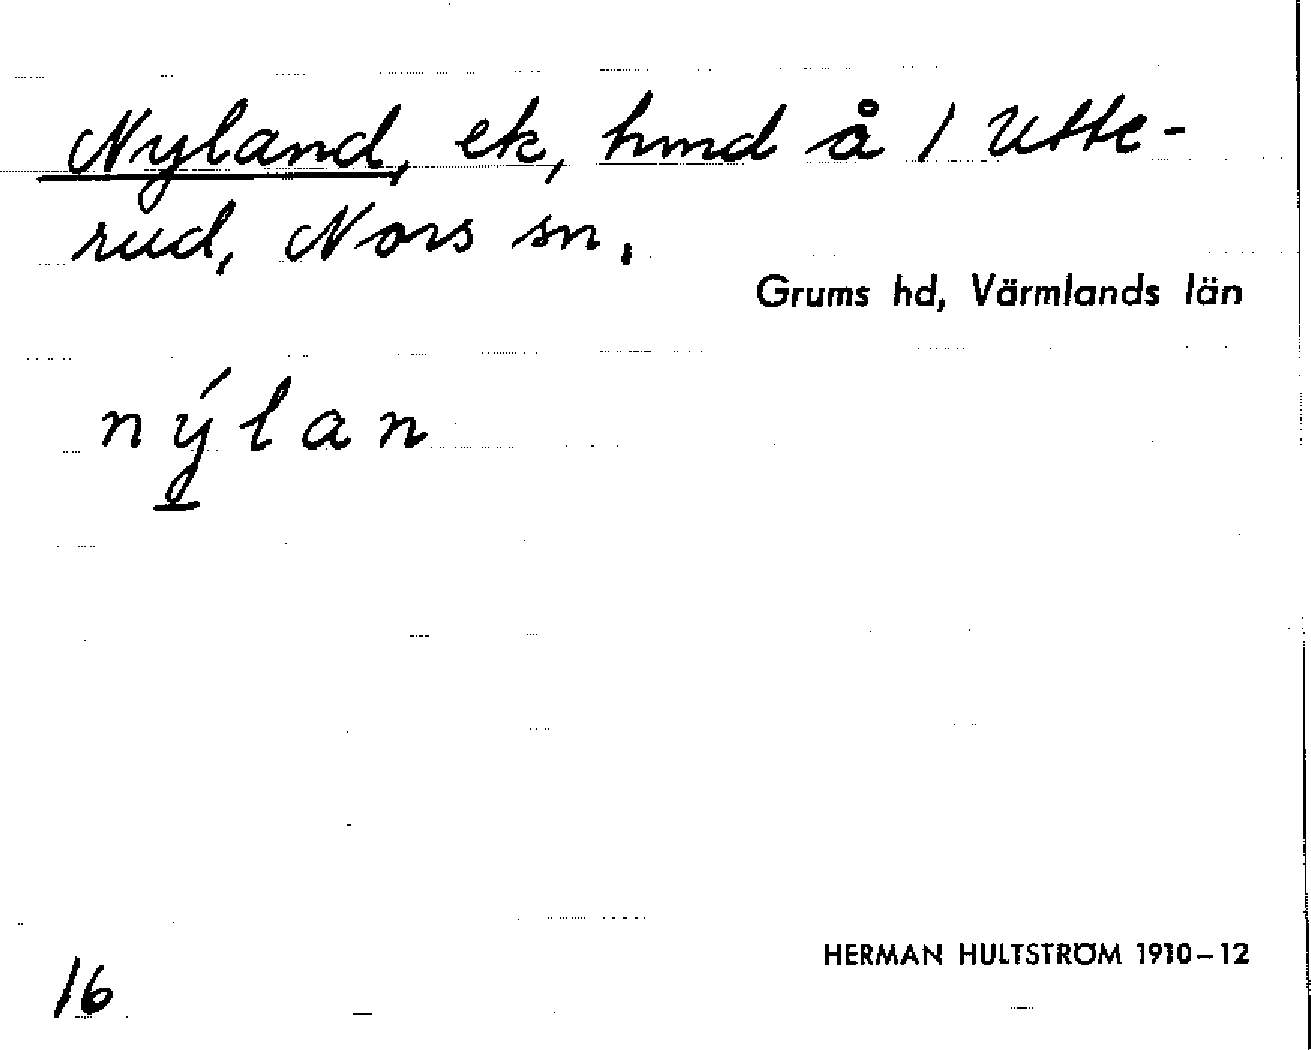 Nyland, ek, hmd å 1 Utte-
rud, Nors sn.
Grums hd, Värmlands län
nýlan
HERMAN HULTSTRÖM 1910-12
16